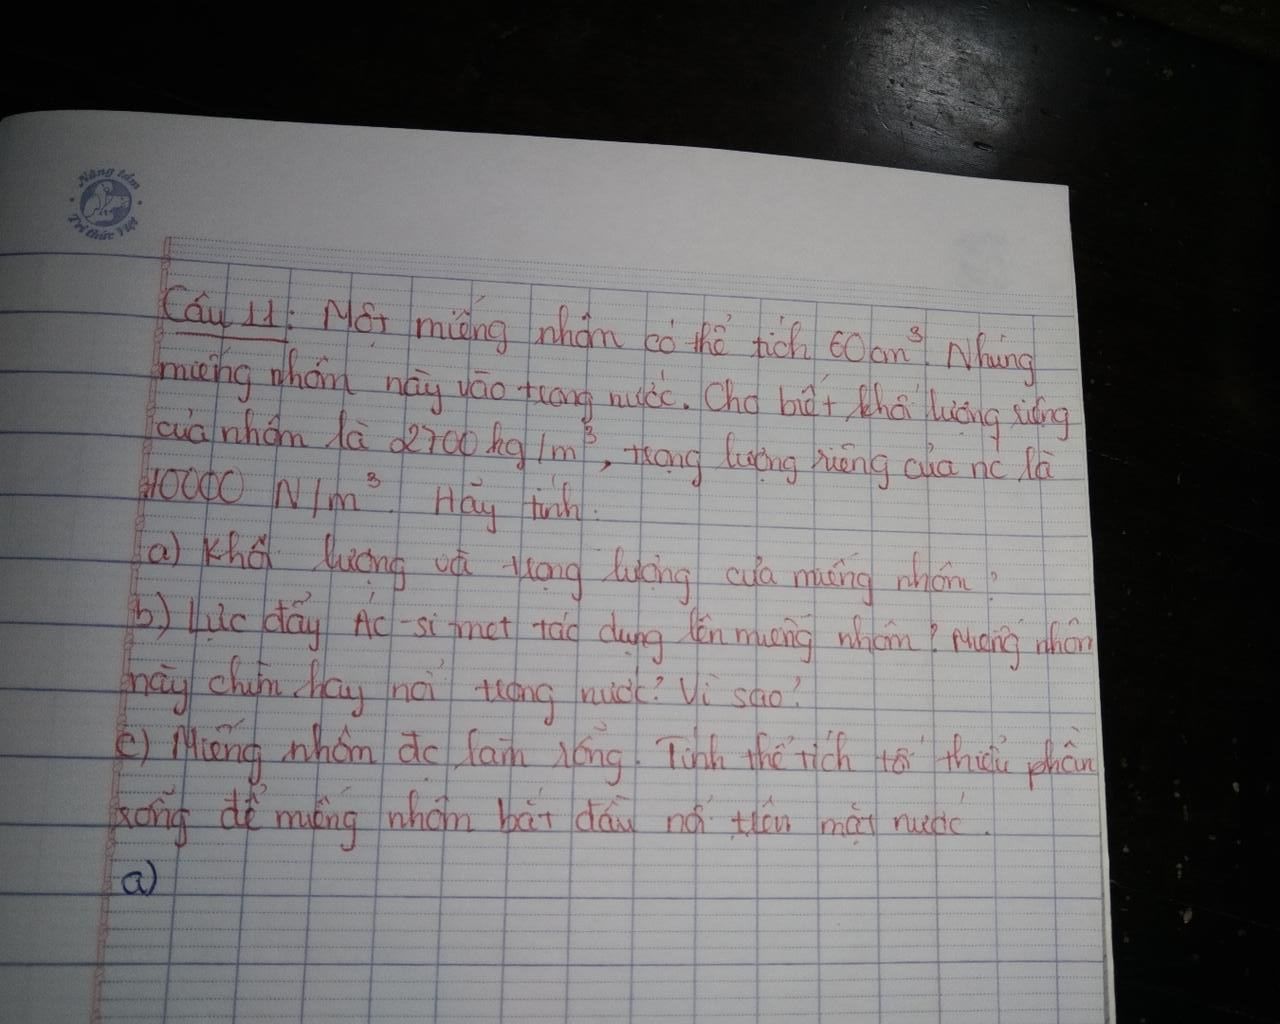 Nâng tầm
Tri thức Việt
Câu 11: Một miếng nhôm có thể tích 60cm³. Nhúng
miếng nhôm này vào trong nước. Cho biết khối lượng riêng
của nhôm là 2700 kg/m³, trọng lượng riêng của nc là
10000 N/m³. Hãy tính.
a) Khối lượng và trọng lượng của miếng nhôm?
b) Lực đẩy Ác-si-met tác dụng lên miếng nhôm? Miếng nhôm
này chìm hay nổi trong nước? Vì sao?
c) Miếng nhôm đc làm rỗng. Tính thể tích tối thiểu phần
rỗng để miếng nhôm bắt đầu nổi trên mặt nước.
a)